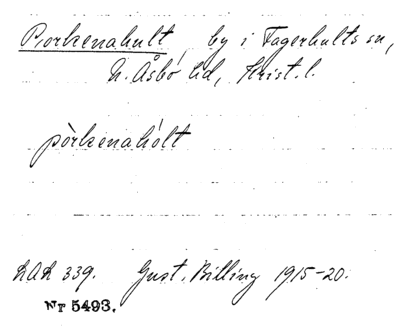 Porkenahult by i Fagerhults sn,
N. Åsbo hd, Krist. l.
pòrkenahólt
LAL 339. Gust. Billing 1915-20.
Nr 5493.